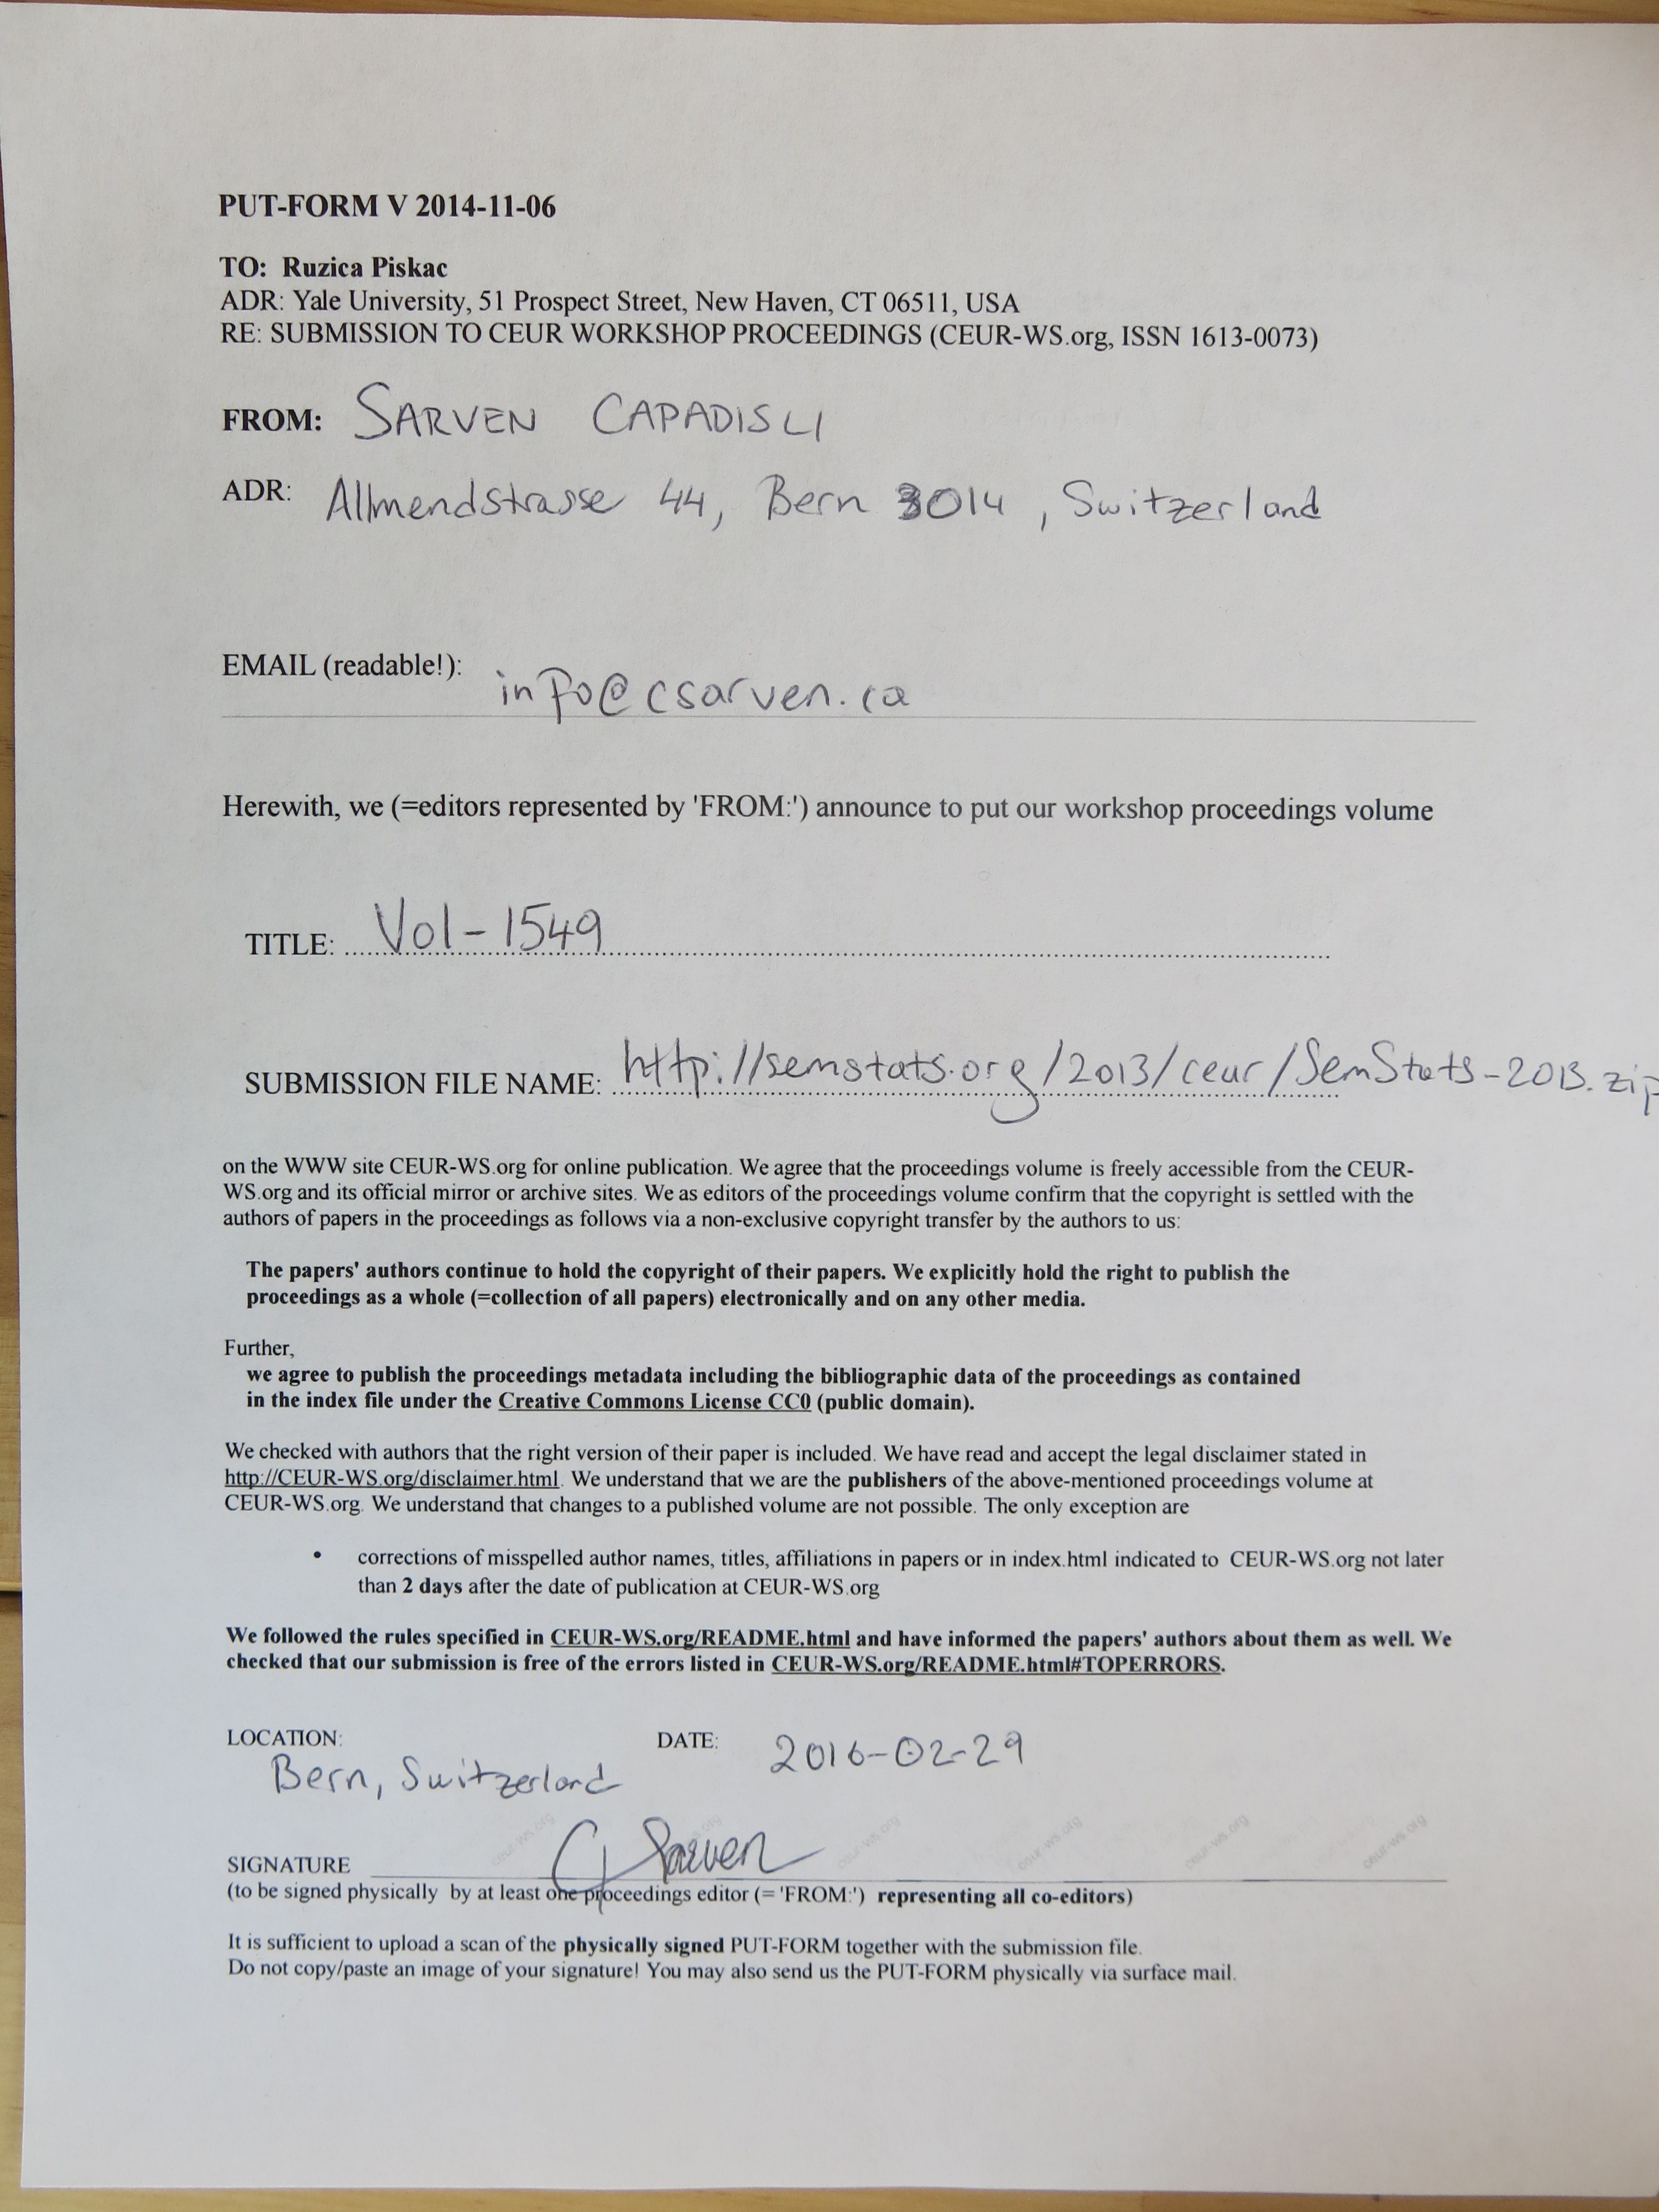 PUT-FORM V 2014-11-06
TO: Ruzica Piskac
ADR: Yale University, 51 Prospect Street, New Haven, CT 06511, USA
RE: SUBMISSION TO CEUR WORKSHOP PROCEEDINGS (CEUR-WS.org, ISSN 1613-0073)
FROM: SARVEN CAPADISLI
ADR: Allmendstrasse 44, Bern 3014, Switzerland
EMAIL (readable!): info@csarven.ca
Herewith, we (=editors represented by 'FROM:') announce to put our workshop proceedings volume
TITLE: Vol-1549
SUBMISSION FILE NAME: http://semstats.org/2013/ceur/SemStats-2013.zip
on the WWW site CEUR-WS.org for online publication. We agree that the proceedings volume is freely accessible from the CEUR-
WS.org and its official mirror or archive sites. We as editors of the proceedings volume confirm that the copyright is settled with the
authors of papers in the proceedings as follows via a non-exclusive copyright transfer by the authors to us:
The papers' authors continue to hold the copyright of their papers. We explicitly hold the right to publish the
proceedings as a whole (=collection of all papers) electronically and on any other media.
Further,
we agree to publish the proceedings metadata including the bibliographic data of the proceedings as contained
in the index file under the Creative Commons License CC0 (public domain).
We checked with authors that the right version of their paper is included. We have read and accept the legal disclaimer stated in
http://CEUR-WS.org/disclaimer.html. We understand that we are the publishers of the above-mentioned proceedings volume at
CEUR-WS.org. We understand that changes to a published volume are not possible. The only exception are
• corrections of misspelled author names, titles, affiliations in papers or in index.html indicated to CEUR-WS.org not later
than 2 days after the date of publication at CEUR-WS.org
We followed the rules specified in CEUR-WS.org/README.html and have informed the papers' authors about them as well. We
checked that our submission is free of the errors listed in CEUR-WS.org/README.html#TOPERRORS.
LOCATION: DATE: 2016-02-29
Bern, Switzerland
SIGNATURE Sarven
ceur-ws.org ceur-ws.org ceur-ws.org ceur-ws.org ceur-ws.org ceur-ws.org
(to be signed physically by at least one proceedings editor (='FROM:') representing all co-editors)
It is sufficient to upload a scan of the physically signed PUT-FORM together with the submission file.
Do not copy/paste an image of your signature! You may also send us the PUT-FORM physically via surface mail.